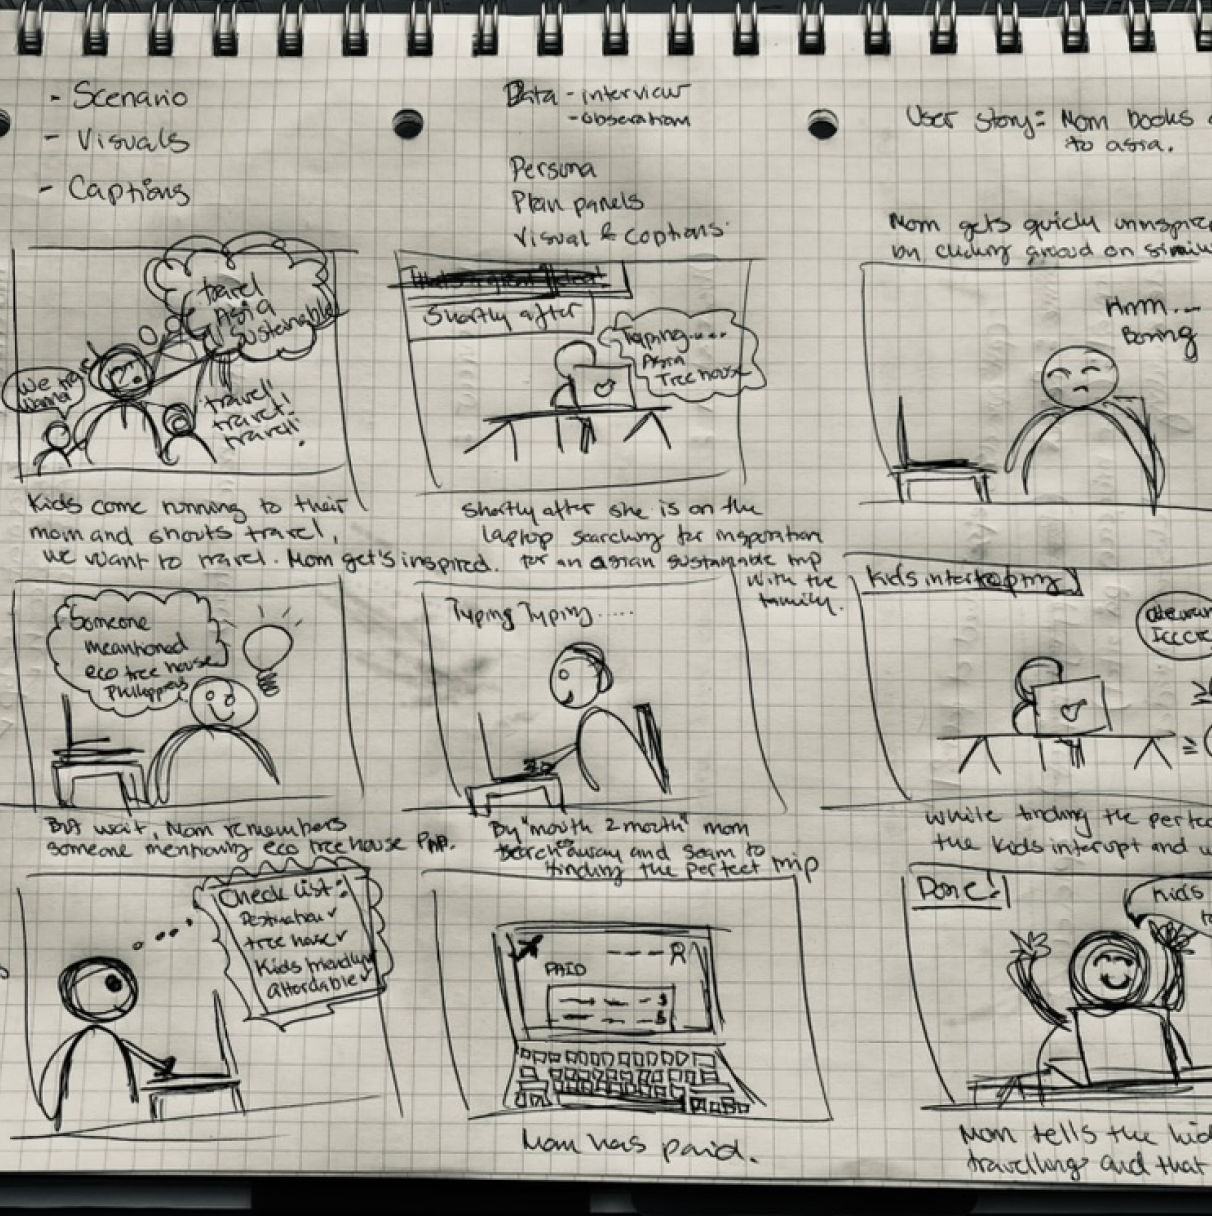 - Scenario
- Visuals
- Captions
Data - interview
- obseration
Persona
Plan panels
Visual & Captions
User story: Mom books
to asia.
travel
Asia
Sustainable
We
wanna travel
travel!
travel!
travel!
Kids come running to their
mom and shouts travel,
we want to travel. Mom get's inspired.
Shortly after
Typing....
Asia
Tree house
Shortly after she is on the
laptop searching for inspiration
for an asian sustainable trip
with the
family.
Mom gets quickly
on similar
Hmm...
Boring
Someone
meantioned
eco tree house
Philoppers
But wait, Mom remembers
someone mentioning eco tree house
Typing Typing.....
By "mouth 2 mouth" mom
search away and seam to
finding the perfect trip
Kids interrupting
While finding the perfec
the kids interupt and w
Check list:
Destination ✓
tree house ✓
Kids friendly ✓
affordable ✓
PAID
R
$
$
Mom has paid.
Done!
Kids
Mom tells the kid
travelling and that